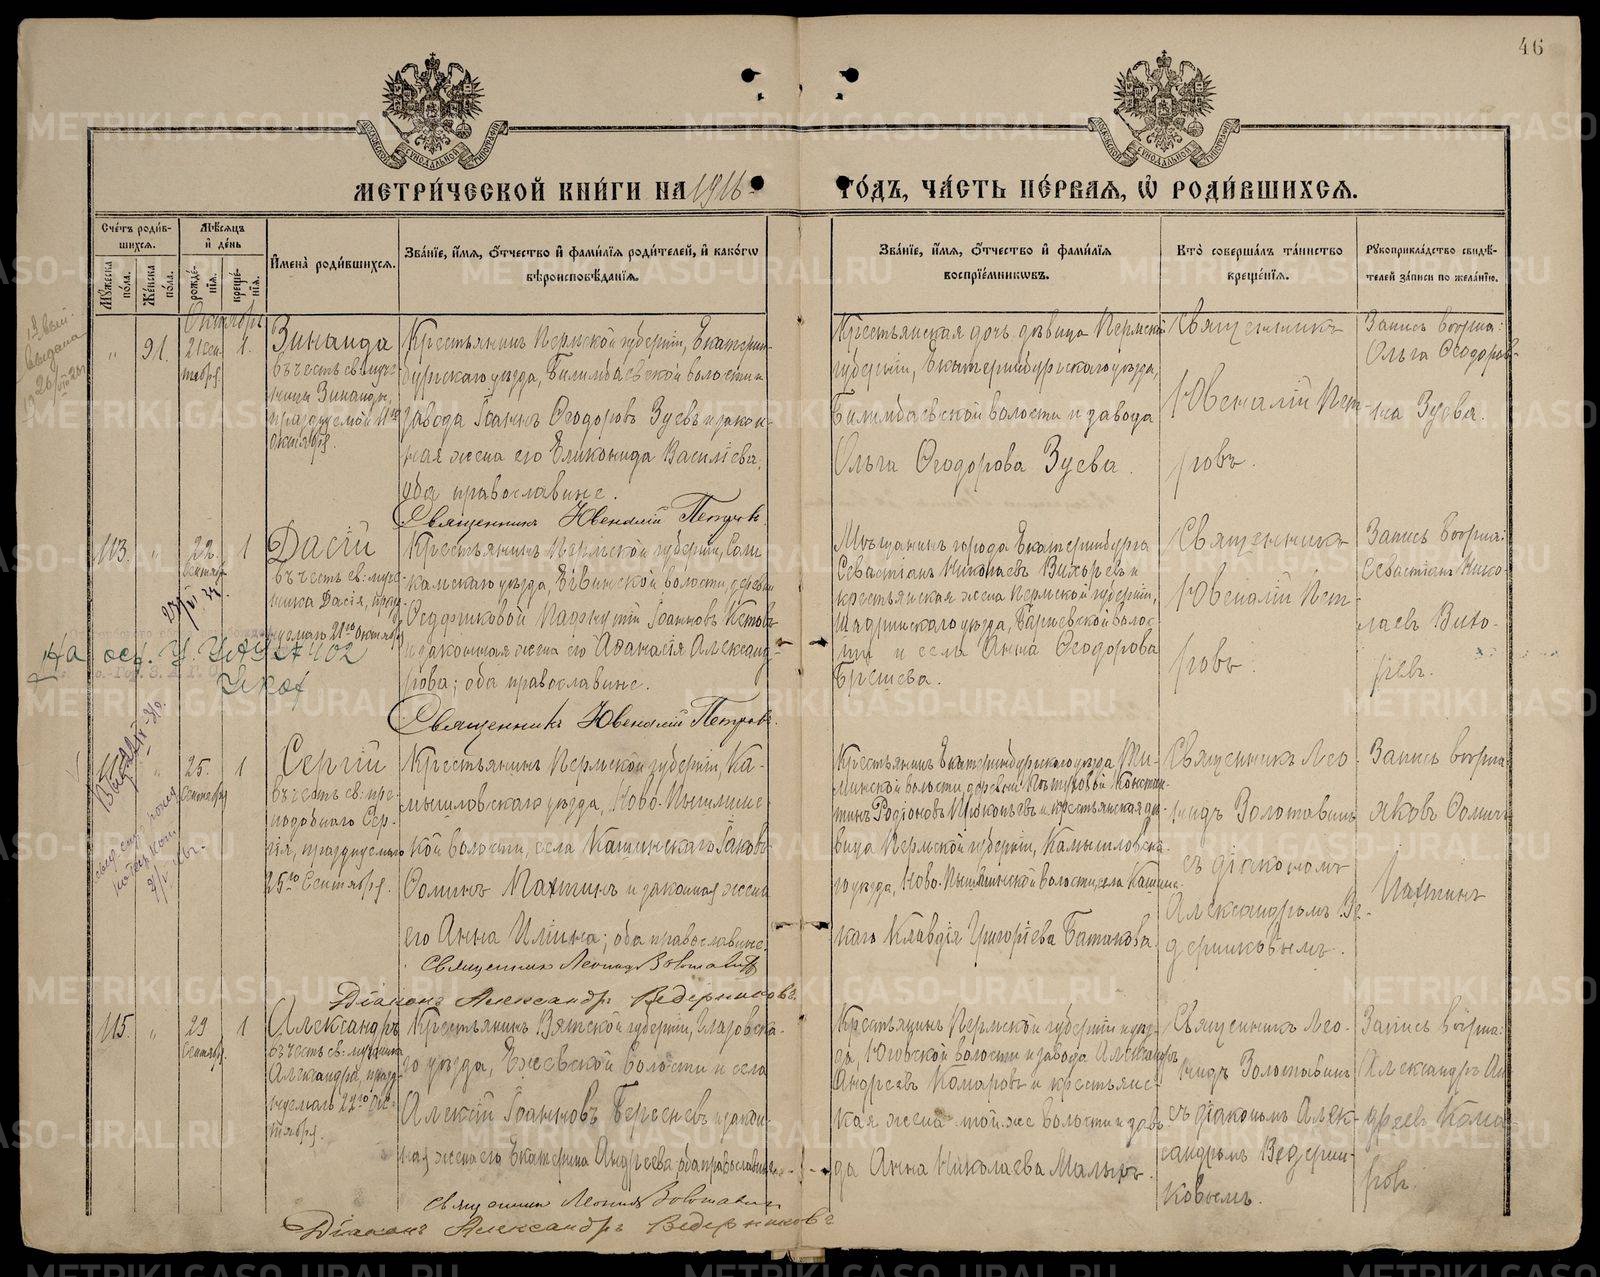 46
МЕТРИ́ЧЕСКОЙ КНИ́ГИ НА 1916 ГО́ДЪ, ЧА́СТЬ ПЕ́РВАЯ, Ѡ҆ РОДИ́ВШИХСѦ.
Сче́тъ роди́в-
шихся.
Мѣсяцъ
и҆ де́нь
Му́жеска
по́ла.
Же́нска
по́ла.
рожде́-
нїя.
креще́-
нїя.
И҆мена̀ роди́вшихся.
Зва́нїе, и҆́мя, ѻ҆́тчество и҆ фамѝлїя роди́телей, и҆ како́гѡ
вѣроисповѣ́данїя.
Зва́нїе, и҆́мя, ѻ҆́тчество и҆ фамѝлїя
воспрїе́мникѡвъ.
Кто̀ соверша́лъ та́инство
креще́нїя.
Рꙋкоприкла́дство свидѣ́-
телей за́писи по жела́нїю.
Октябрь
" 91. 21 сен-
тября 1.
Зинаида
въ честь св: муче-
ницы Зинаиды,
празднуемой 11го
октября.
Крестьянинъ Пермской губерніи, Екатерин-
бургскаго уѣзда, Билимбаевской волости и
завода Іоаннъ Ѳеодоровъ Зуевъ и закон-
ная жена его Еликонида Василіева,
оба православные.
Священникъ Ювеналій Петровъ
Крестьянская дочь дѣвица Пермской
губерніи, Екатеринбургскаго уѣзда,
Билимбаевской волости и завода
Ольга Ѳеодорова Зуева.
Священникъ
Ювеналій Пет-
ровъ.
Запись воспріа:
Ольга Ѳеодоров-
на Зуева.
113. " 22
сентяб. 1
Дасій
въ честь св: муче-
ника Дасія, празд-
нуемаго 21го октября
Крестьянинъ Пермской губерніи, Соли-
камскаго уѣзда, Егвинской волости, деревни
Пафнутій Іоанновъ Кетовъ
и законная жена его Аѳанасія Александ-
рова; оба православные.
Священникъ Ювеналій Петровъ.
Мѣщанинъ города Екатеринбурга
Севастіанъ Николаевъ Вихоревъ и
крестьянская жена Пермской губерніи,
Шадринскаго уѣзда, волос-
ти и села Анна Ѳеодорова
Священникъ
Ювеналій Пет-
ровъ.
Запись воспріа:
Севастіанъ Нико-
лаевъ Вихо-
ревъ.
" 25.
сентября 1
Сергій
въ честь св: пре-
подобнаго Сер-
гія, празднуемаго
25го Сентября.
Крестьянинъ Пермской губерніи, Ка-
мышловскаго уѣзда, Ново-Пышминс-
кой волости, села Кашинскаго Іаковъ
Ѳоминъ Пахтинъ и законная жена
его Анна Иліина; оба православные.
Священникъ Леонидъ Золотавинъ
Діаконъ Александръ Ведерниковъ.
Крестьянинъ Екатеринбургскаго уѣзда,
волости, деревни Констан-
тинъ Родіоновъ Прокопьевъ и крестьянская дѣ-
вица Пермской губерніи, Камышловска-
го уѣзда, Ново-Пышминской волости, села Кашинс-
каго Клавдія Григоріева Батикова.
Священникъ Лео-
нидъ Золотавинъ
съ діакономъ
Александромъ Ве-
дерниковымъ.
Запись воспріа:
Яковъ Ѳомичъ
Пахтинъ
115. " 29
сентября. 1
Александръ
въ честь св: мученика
Александра, празд-
нуемаго 22го ок-
тября.
Крестьянинъ Вятской губерніи, Глазовска-
го уѣзда, Ежевской волости и села
Алексій Іоанновъ Береневъ и закон-
ная жена его Екатерина Андреева, оба православные.
Священникъ Леонидъ Золотавинъ
Діаконъ Александръ Ведерниковъ
Крестьянинъ Пермской губерніи и уѣз-
да, Юговской волости и завода Александръ
Андреевъ Комаровъ и крестьянс-
кая жена той-же волости и заво-
да Анна Николаева
Священникъ Лео-
нидъ Золотавинъ
съ діакономъ Алек-
сандромъ Ведерни-
ковымъ.
Запись воспріа:
Александръ Ан-
дреевъ Кома-
ровъ.
METRIKI.GASO-URAL.RU